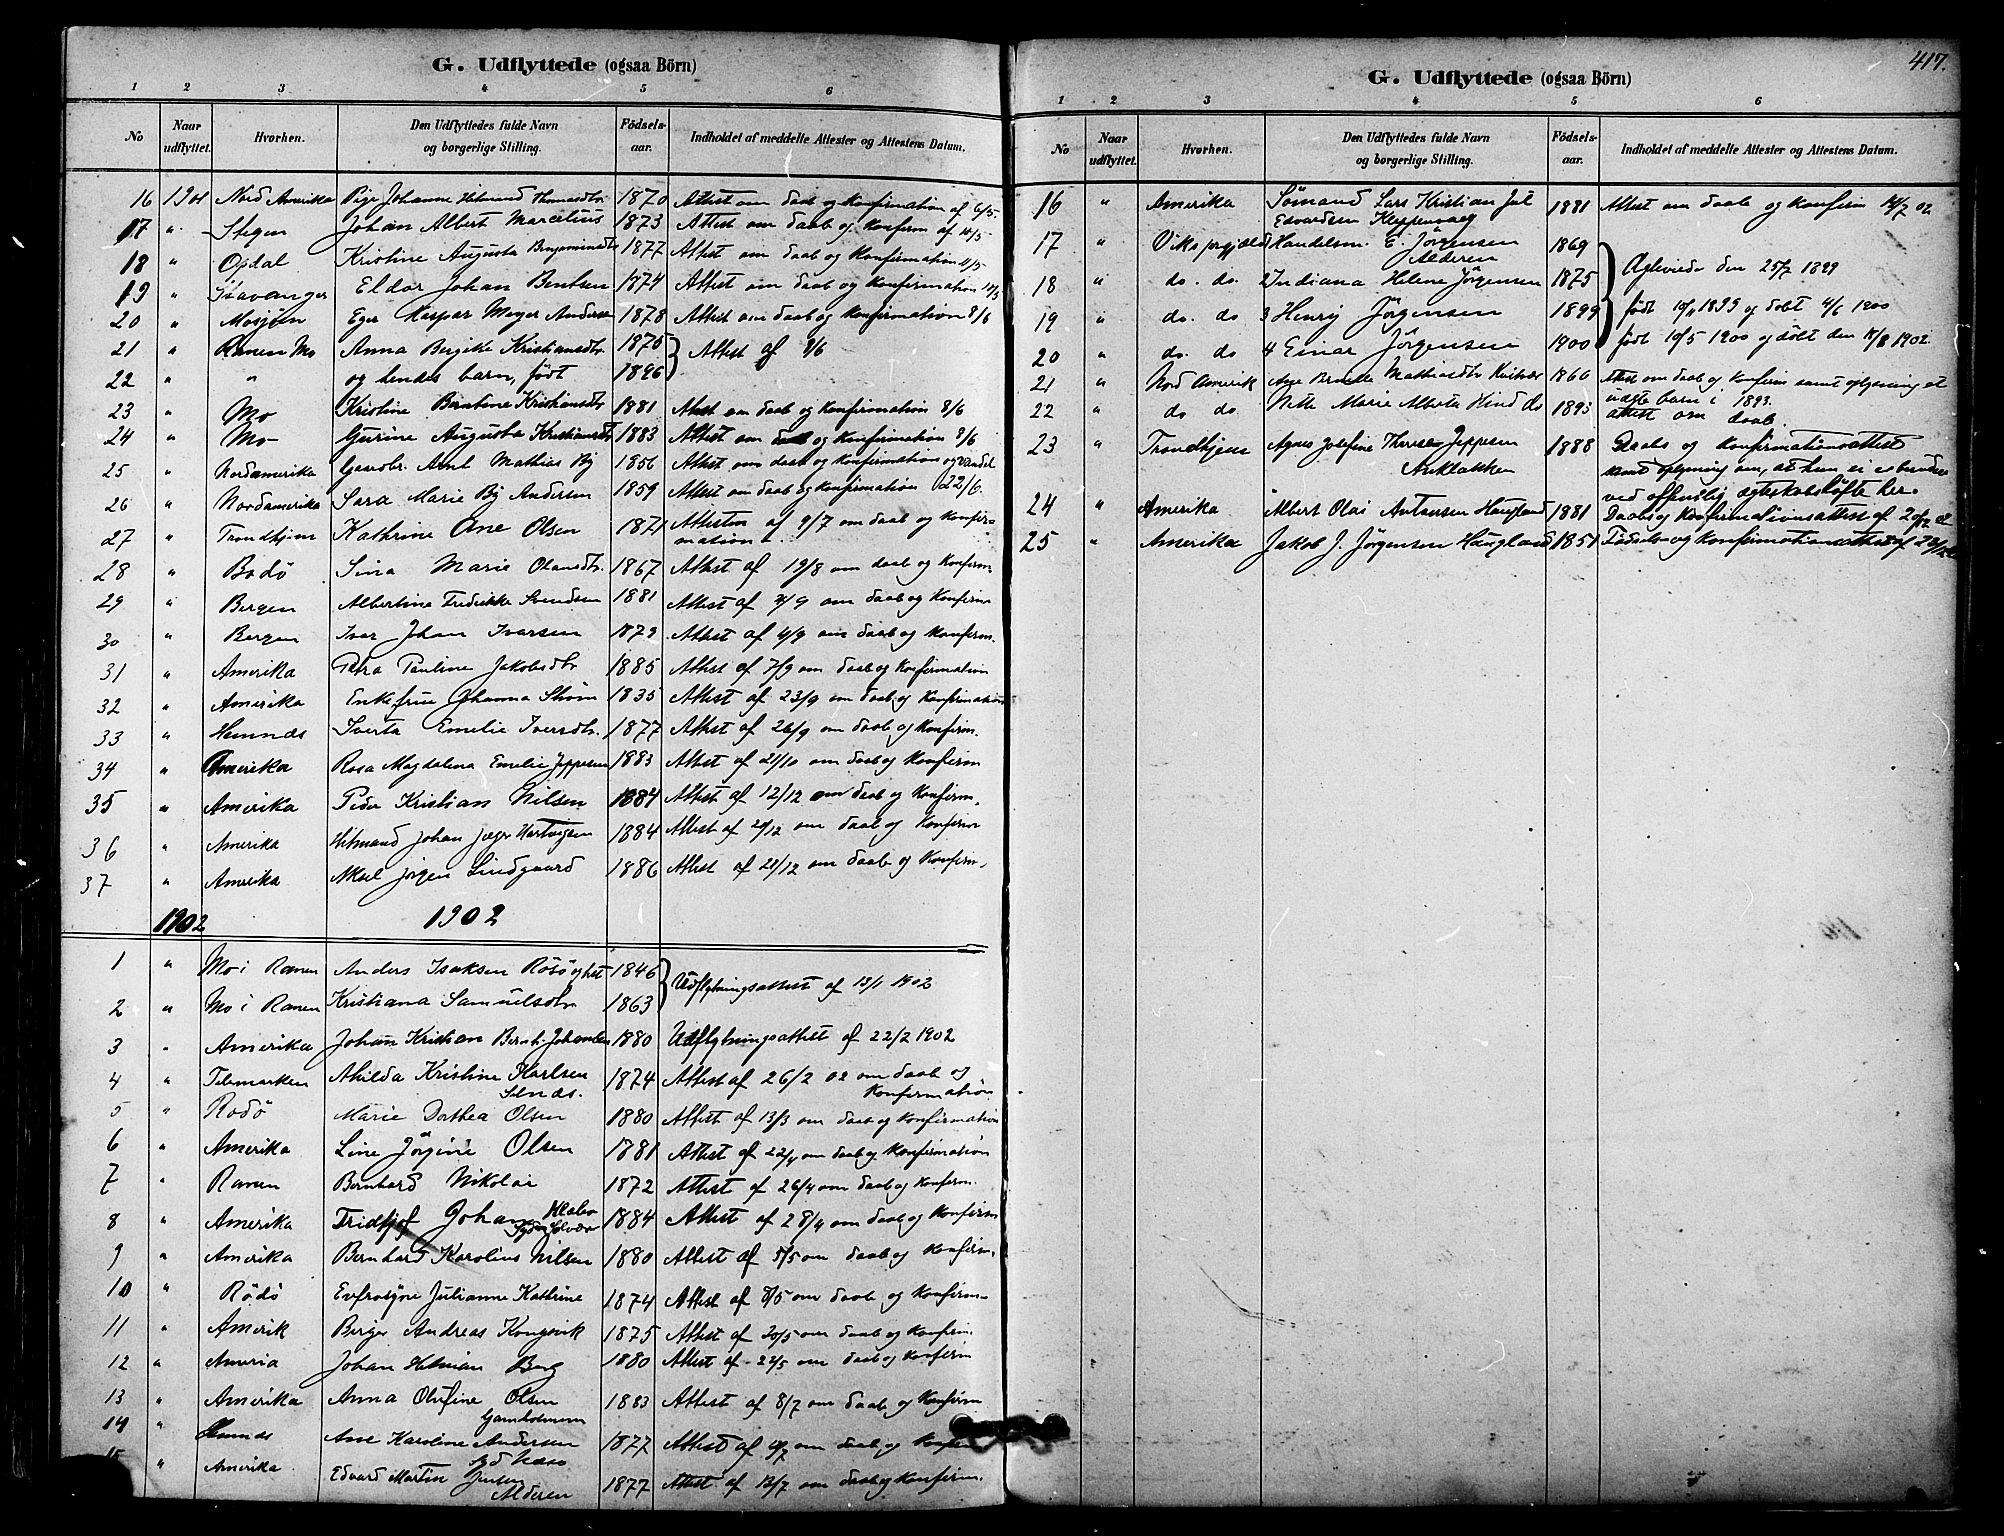 G. Udflyttede (ogsaa Börn)
1 2 3 4 5 6
No Naar udflyttet. Hvorhen. Den Udflyttedes fulde Navn og borgerlige Stilling. Fødsels-aar. Indholdet af meddelte Attester og Attestens Datum.
16 1901 Nord Amerika Pige Johanne Hitmand Thomasdtr 1870 Attest om daab og Konfirmation af 6/5.
17 " Stegen Johan Albert Marcelius 1873 Attest om daab og Konfirm af 14/5
18 " Opdal Kristine Augusta Benjaminsdtr 1877 Attest om daab og Konfirmation 4/5
19 " Stavanger Eldor Johan Bentsen 1874 Attest om daab og Konfirmation
20 " Mosjøen Eger Kaspar Meyer Anders 1878 Attest om daab og Konfirmation 8/6
21 " Ranen Mo Anna Bergitte Kristiansdtr 1875 Attest af 8/6
22 " " og hendes barn, født 1896
23 " Mo Kristine Berntine Kristiansdtr 1881 Attest om daab og Konfirmation 8/6
24 " Mo Gurine Augusta Kristiansdtr 1883 Attest om daab og Konfirmation 8/6
25 " Nordamerika Gaardbr. Arnt Mathias By 1856 Attest om daab og Konfirmation og vandel
26 " Nordamerika Sara Marie By Andersen 1859 Attest om daab og Konfirmation 22/6.
27 " Trondhjem Kathrine Ane Olsen 1871 Attestm af 9/7 om daab og Konfir-
mation.
28 " Bodø Sina Marie Olausdtr. 1867 Attest af 19/8 om daab og Konfirm.
29 " Bergen Albertine Fredrikke Svendsen 1881 Attest af 4/9 om daab og Konfirm
30 " Bergen Iver Johan Iversen 1879 Attest af 4/9 om daab og Konfirm.
31 " Amerika Petra Pauline Jakobsdtr 1885 Attest af 7/9 om daab og Konfirmation
32 " Amerika Enkefrue Johanna Strøm 1835 Attest af 23/9 om daab og Konfirmation
33 " Hemnæs Iverta Emelie Iversdtr. 1877 Attest af 26/9 om daab og Konfirm.
34 " Amerika Rosa Magdalena Emelie Jeppesen 1883 Attest af 21/10 om daab og Konfirm
35 " Amerika Peder Kristian Nilsen 1884 Attest af 12/12 om daab og Konfirm.
36 " Amerika Hitmand Johan Jæger Hartvigsen 1884 Attest af 21/12 om daab og Konfirm
37 " Amerika Aksel Jørgen Lindgaard 1886 Attest af 21/12 om daab og Konfirm.
1902 1902
1 " Mo i Ranen Anders Isaksen 1846 Udflytningsattest af 13/1 1902
2 " Mo i Ranen Kristiana Samuelsdtr 1863
3 " Amerika Johan Kristian Bernt. Johansen 1880 Udflytningsattest af 22/2 1902
4 " Telemarken Athilda Kristine Karlsen 1874 Attest af 26/2 02 om daab og
Selnæs. Konfirmation
5 " Rødø Marie Dorthea Olsen 1880 Attest af 13/3 om daab og Konfirmation
6 " Amerika Line Jörgine Olsen 1881 Attest af 22/4 om daab og Konfirmation
7 " Ranen Bernhard Nikolai 1872 Attest af 26/4 om daab og Konfirm.
8 " Amerika Fridtjof Johan 1884 Attest af 28/4 om daab og Konfirm
9 " Amerika Bernhard Karolius Nilsen 1880 Attest af 5/5 om daab og Konfirm.
10 " Rödö Evfrosyne Julianne Kathrine 1874 Attest af 8/5 om daab og Konfirm-
11 " Amerik Berger Andreas Kongsvik 1875 Attest af 20/5 om daab og Konfirm.
12 " Ameria Johan Hitman Berg 1880 Attest af 22/5 om daab og Konfirm
13 " Amerika Anna Olufine Olsen 1883 Attest af 8/7 om daab og Konfirm
Gamholmen
14 " Ane Karoline Andersen 1877 Attest af 4/7 om daab og Konfirm
15 " Amerika Edvard Martin Jensen 1877 Attest af 13/7 om daab og Konfirm.
Alderen
417.
G. Udflyttede (ogsaa Börn)
1 2 3 4 5 6
No Naar udflyttet. Hvorhen. Den Udflyttedes fulde Navn og borgerlige Stilling. Fødsels-aar. Indholdet af meddelte Attester og Attestens Datum.
16 " Amerika Sømand Lars Kristian Jul 1881 Attest om daab og Konfirm 14/7 02
Edvardsen Kleppenvaag
17 " Viks prgjæld Handelsm. E. Jörgensen 1869
Alderen
18 " do. do. 2 Indiana Helene Jörgensen 1875 Afleveret den 25/7 1899
19 " do. do 3 Henrij Jörgensen 1899 født 10/11 1899 og døbt 4/6 1900
20 " do. do 4 Einar Jörgensen 1900 født 10/5 1900 og døbt den 17/8 1902
21 " Nord Amerik Ane Bernette Mathiasdtr 1866 Attest om daab og Konfirm samt oplysning at
22 " do do Nette Marie Alberta Hind do 1893 uægte barn i 1893.
attest om daab.
23 " Trondhjem Agnes Josefine Therese Jeppesen 1888 Daabs og Konfirmationsattest
samt oplysning om, at hun ei er bunden
ved offentlig ægteskabsløfte her.
24 " Amerika Albert Olai Antonsen Haugland 1881 Daabs og Konfirmationsattest af
25 " Amerika Jakob J. Jörgensen Haugland 1851 Fødsels og Konfirmationsattest af